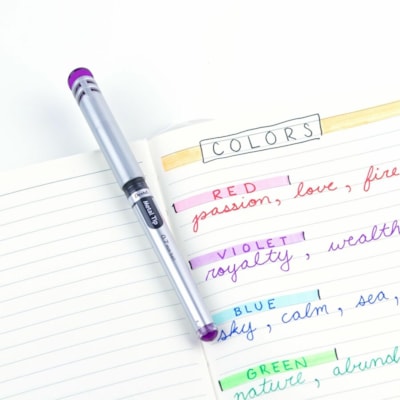 COLORS
RED
passion, love, fire
VIOLET
royalty, wealth
BLUE
sky, calm, sea,
GREEN
nature, abund
Metal Tip